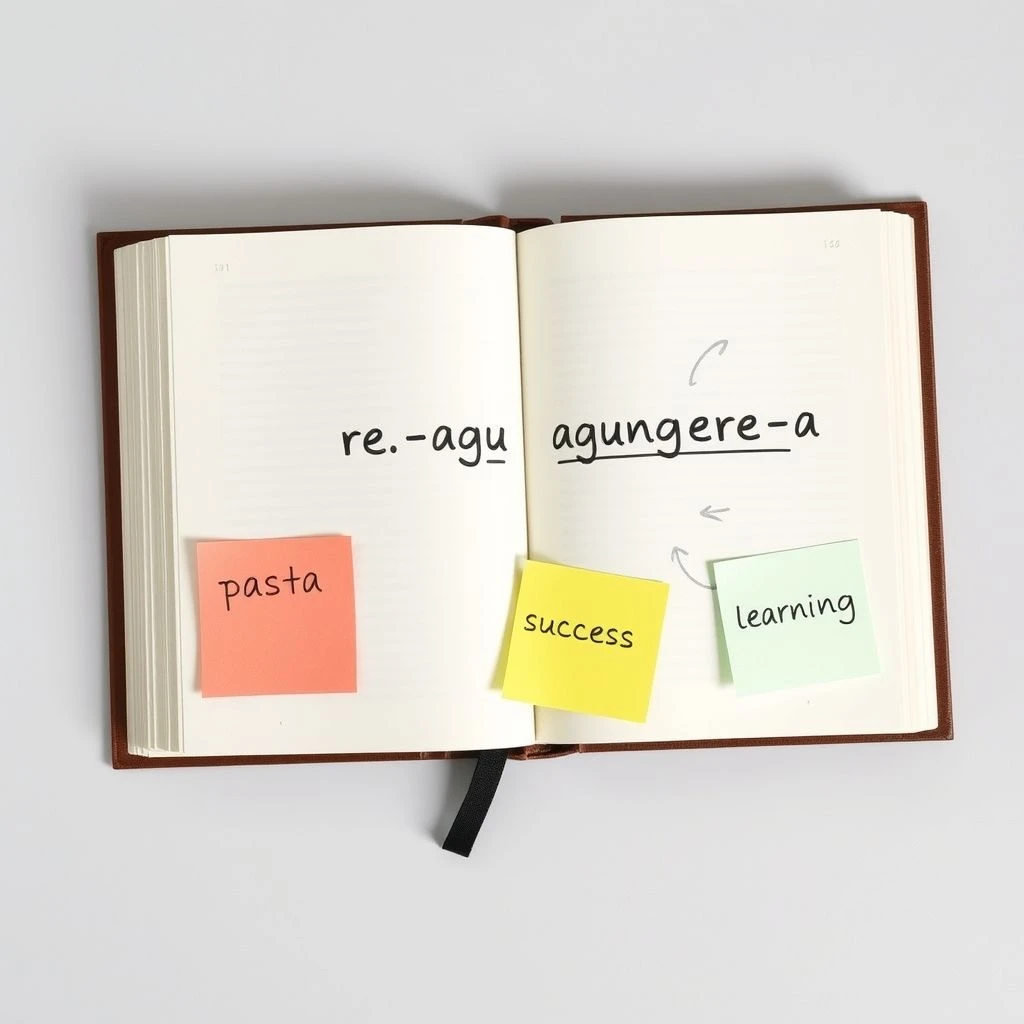 re.-agu agungere-a
pasta
success
learning